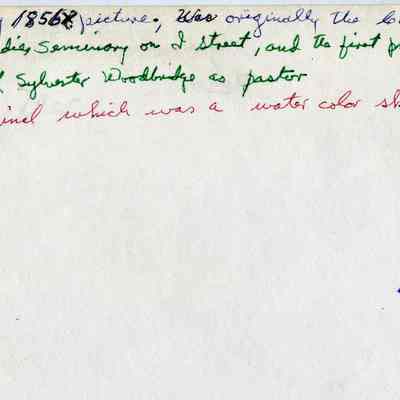 1856 picture. Was originally the
dies Seminary on I street, and the first
Sylvester Woodbridge as pastor
inal which was a water color sk